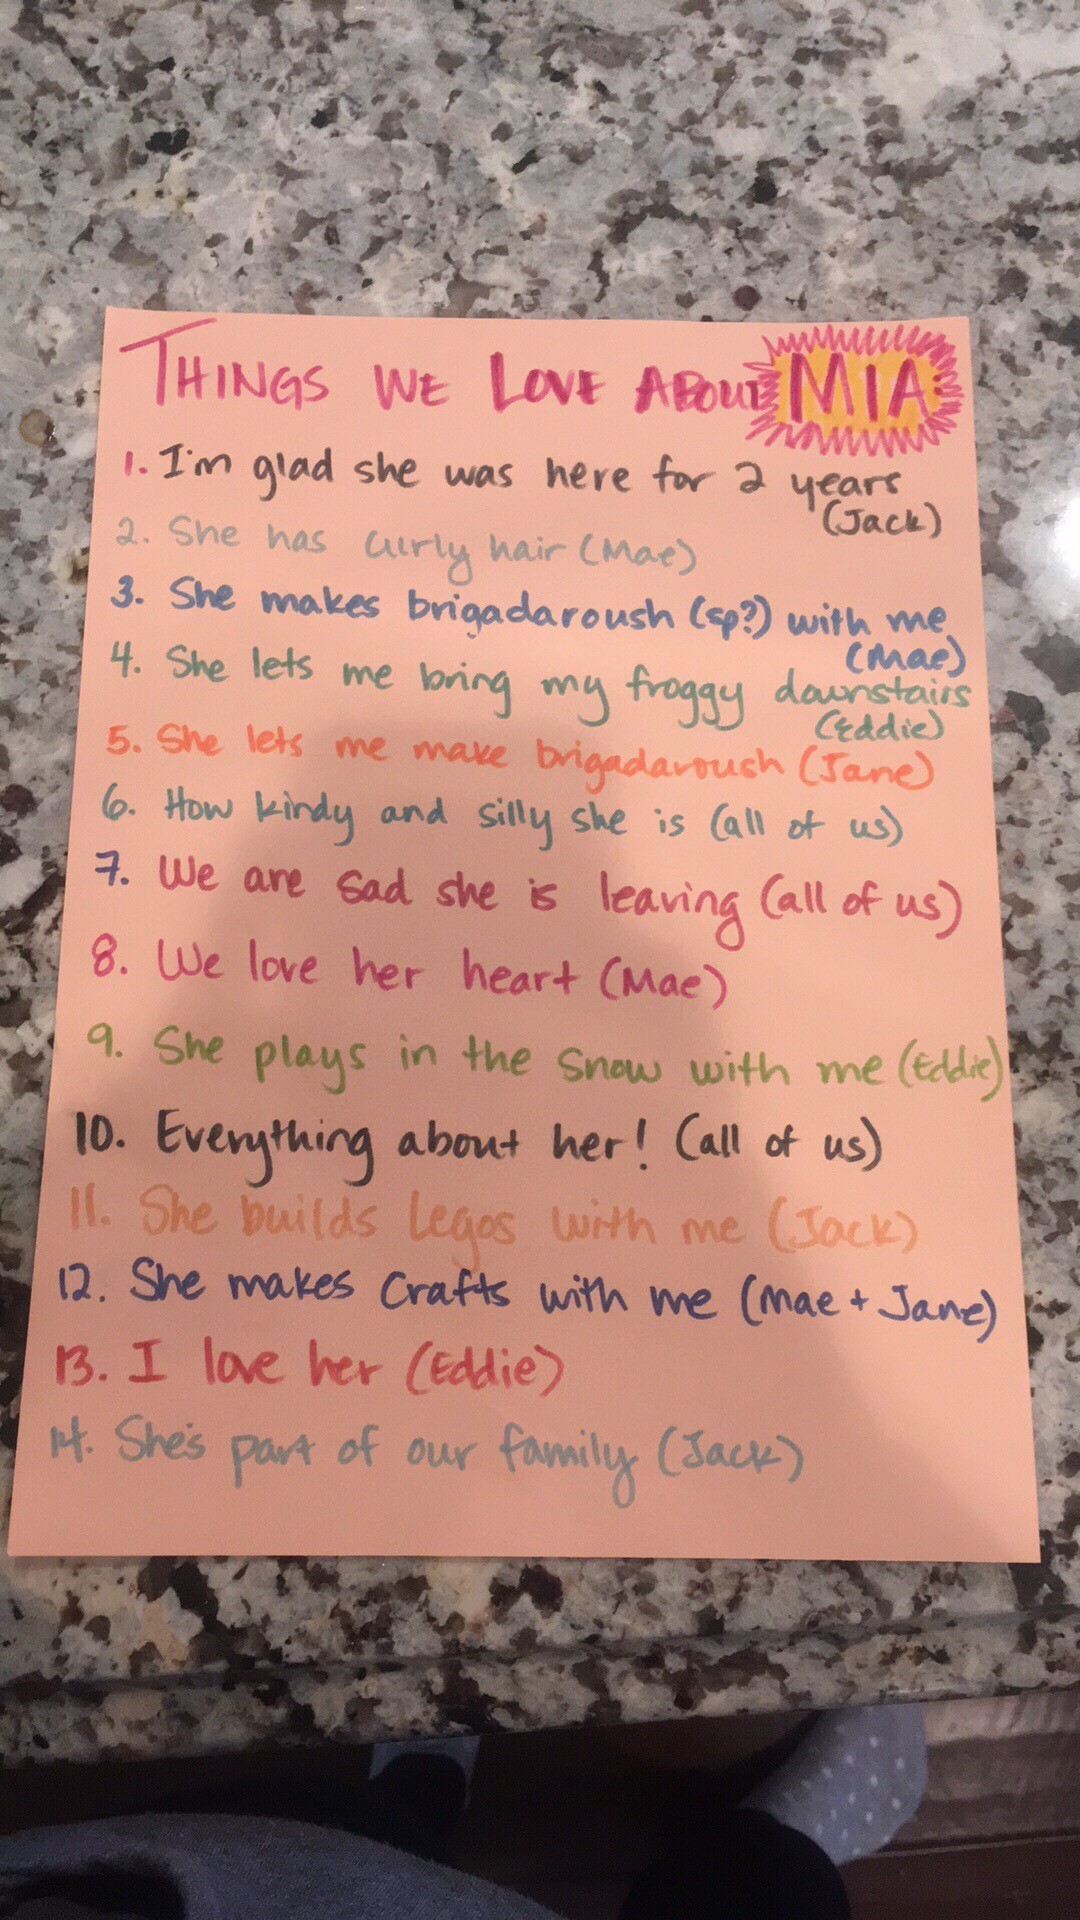 THINGS WE LOVE ABOUT MIA
1. I'm glad she was here for 2 years
(Jack)
2. She has curly hair (Mae)
3. She makes brigadaroush (sp?) with me
(Mae)
4. She lets me bring my froggy downstairs
(Eddie)
5. She lets me make brigadaroush (Jane)
6. How kindy and silly she is (all of us)
7. We are sad she is leaving (all of us)
8. We love her heart (Mae)
9. She plays in the snow with me (Eddie)
10. Everything about her! (all of us)
11. She builds Legos with me (Jack)
12. She makes crafts with me (Mae + Jane)
13. I love her (Eddie)
14. She's part of our family (Jack)